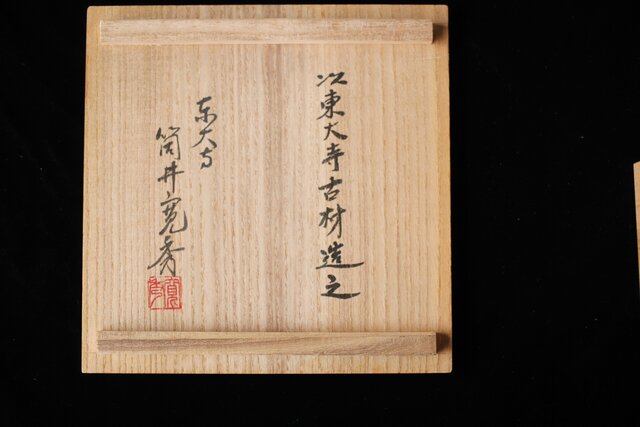 以東大寺古材造之
东大寺
筒井寛秀
寛秀